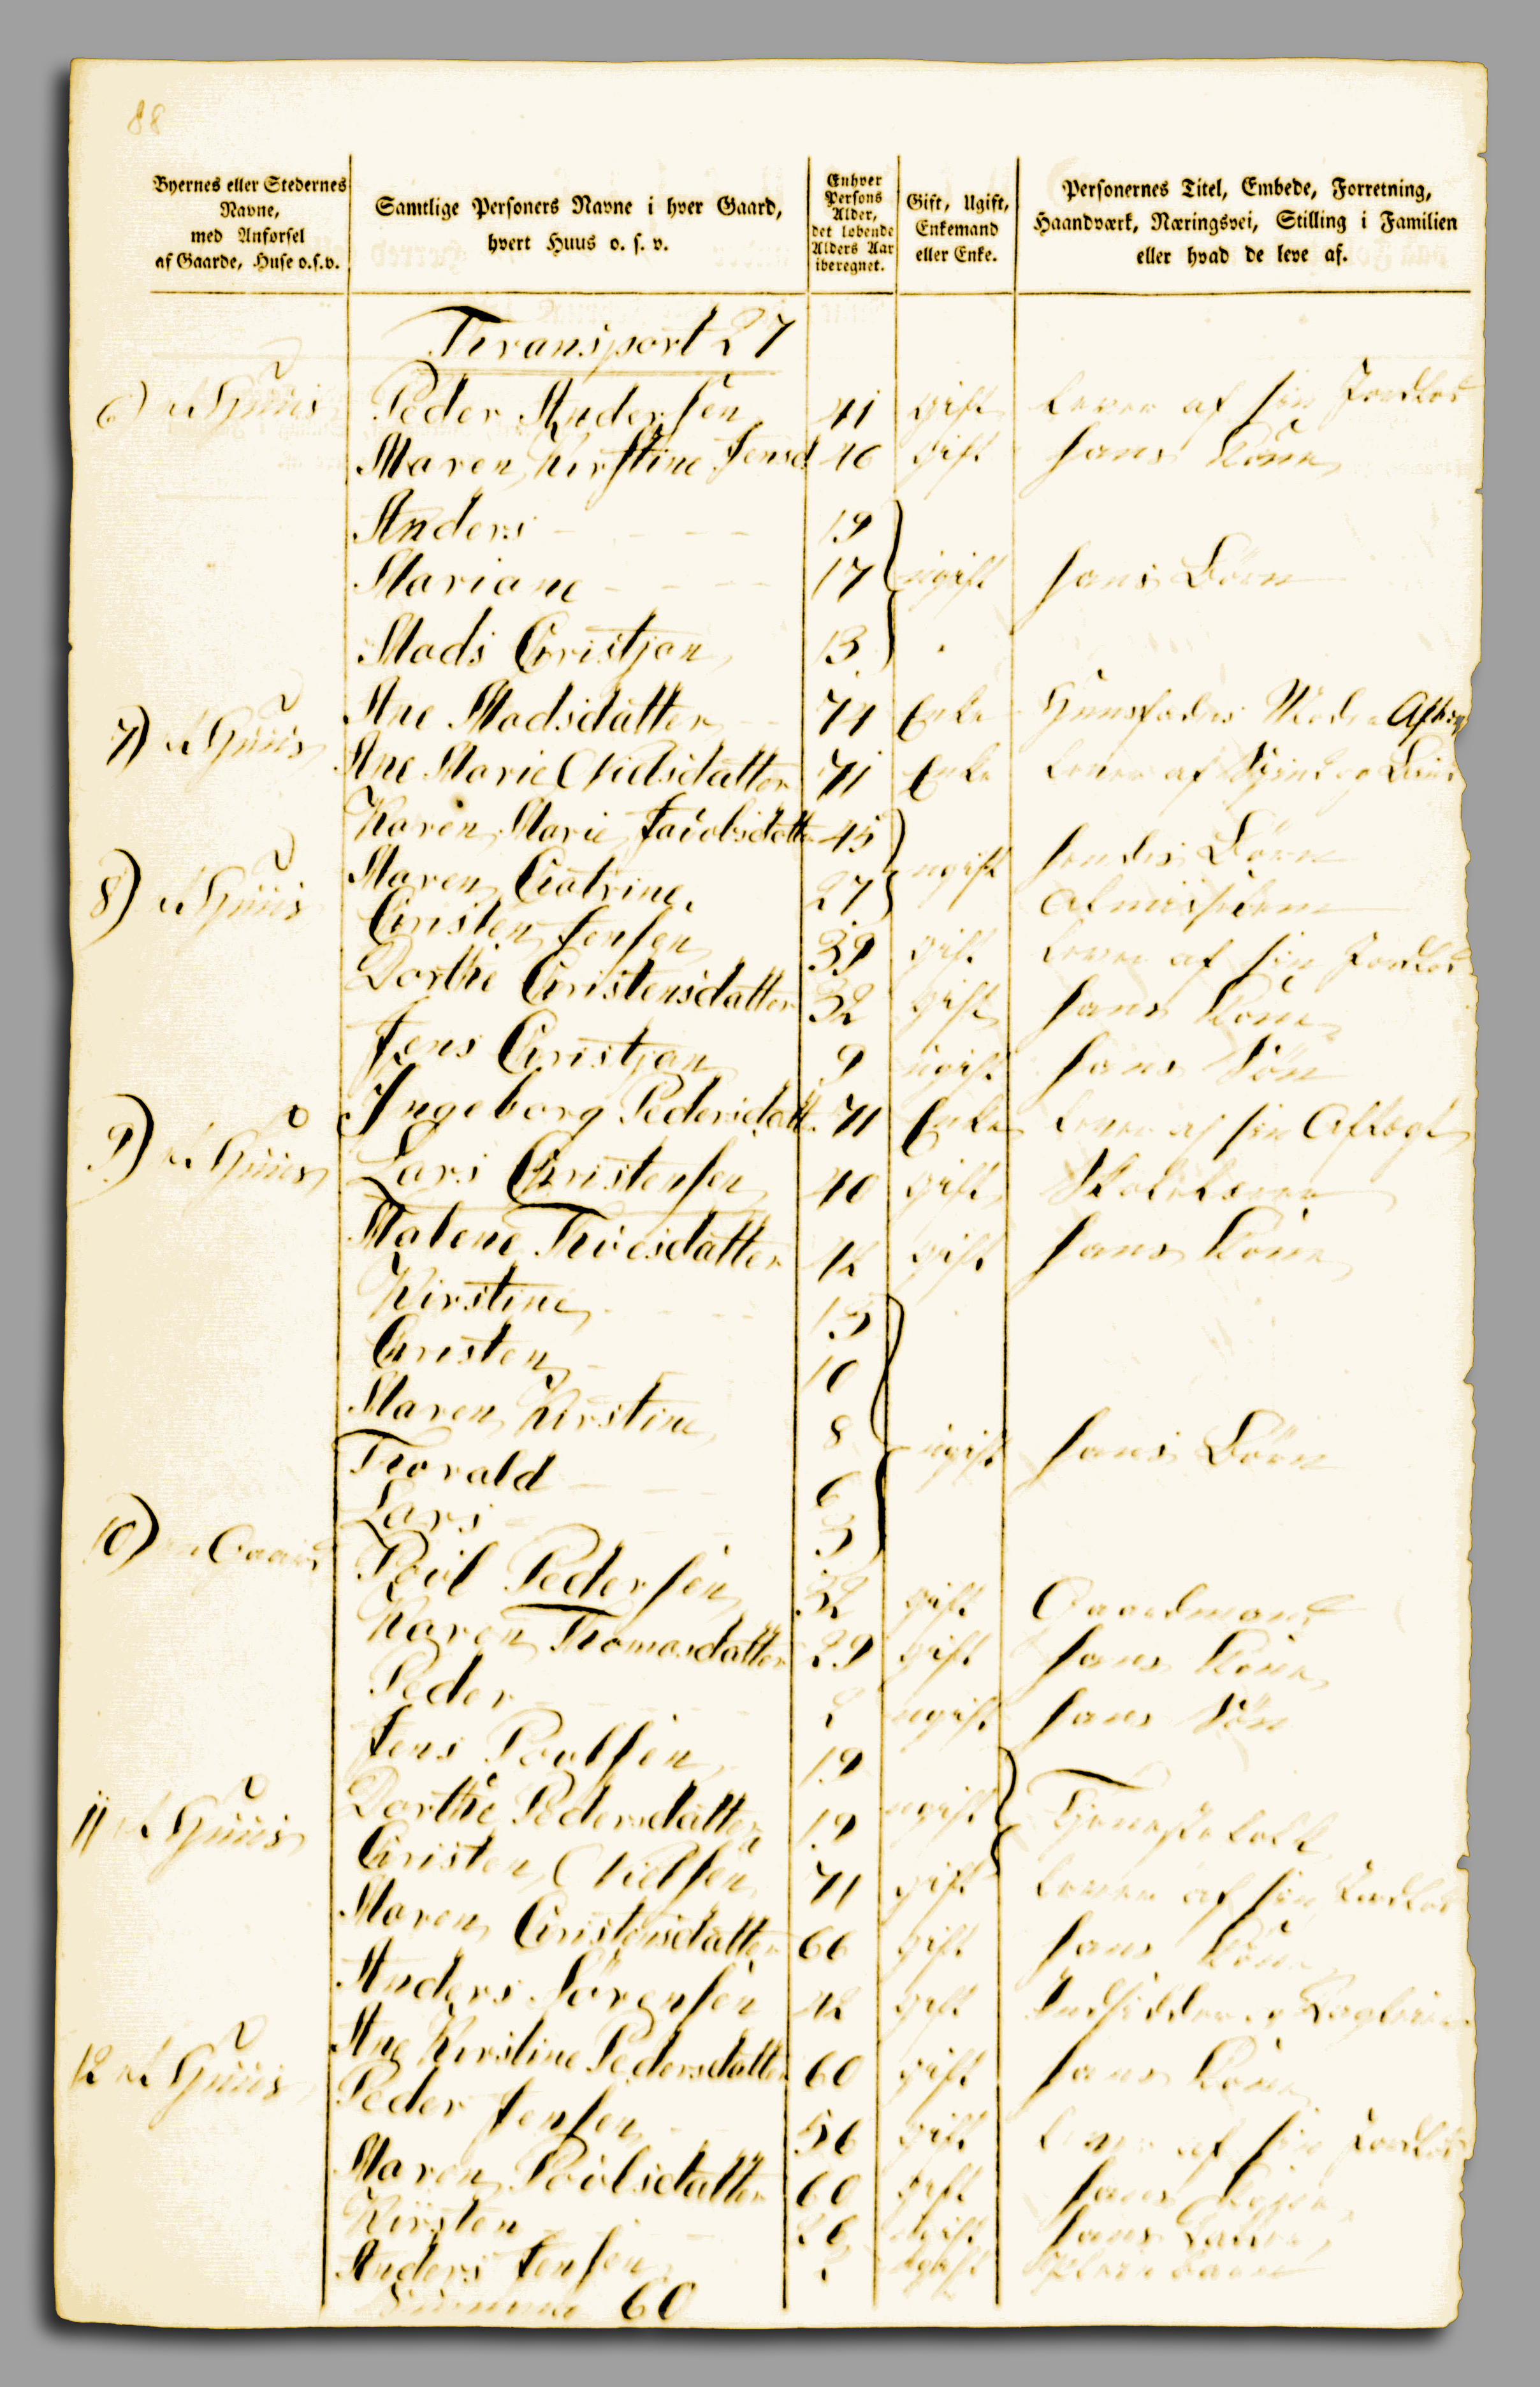 88
Byernes eller Stedernes
Navne,
med Anførsel
af Gaarde, Huse o.s.v.
Samtlige Personers Navne i hver Gaard,
hvert Huus o. s. v.
Enhver
Persons
Alder,
det løbende
Alders Aar
iberegnet.
Gift, Ugift,
Enkemand
eller Enke.
Personernes Titel, Embede, Forretning,
Haandværk, Næringsvei, Stilling i Familien
eller hvad de leve af.
Transport 27
6) et Huus Peder Andersen 41 gift Lever af sin Jordlod
Maren Kirstine Jensd 46 gift hans Kone
Anders 19
Mariane 17 ugift hans Börn
Mads Cristjan 13
Ane Madsdatter 74 Enke Huusfadrs Moder
7) et Huus Ane Marie Nielsdatter 71 Enke Lever af Spind og
Karen Marie Jacobsdatter 45
ugift hendes Börn
Maren Catrine 27
8) et Huus Cristen Jensen 39 gift Lever af sin Jordlod
Dorthe Cristensdatter 32 gift hans Kone
Jens Cristjan 9 ugift hans Sön
Ingeborg Pedersdatt. 71 Enke Lever af sin Aftægt
9) et Huus Lars Cristensen 40 gift Skolelærer
Malene Troesdatter 42 gift hans Kone
Kirstine 13
Cristen 10
Maren Kirstine 8
ugift hans Börn
Thorvald 6
Lars 3
10) en Gaard Poul Pedersen 32 gift Gaardmand
Karen Thomasdatter 29 gift hans Kone
Peder 2 ugift hans Sön
Jens Poulsen 19
ugift Tjenestefolk
Dorthe Pedersdatter 19
11 et Huus Cristen Nielsen 71 gift Lever af sin Jordlod
Maren Cristensdatter 66 gift hans Kone
Anders Sörensen 42 gift Indsidder og Daglejer
Ane Kirstine Pedersdatter 60 gift hans Kone
12 et Huus Peder Jensen 56 gift Lever af sin Jordlod
Maren Poulsdatter 60 gift hans Kone
Kirsten 26 ugift hans Datter
Anders Jensen ugift Plejebarn
Summa 60